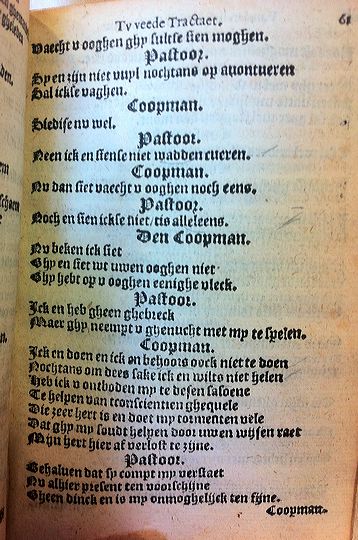 Tvveede Tractaet. 61
Vaecht v ooghen ghy sultse sien moghen.
Pastoor.
Sy en zijn niet vuyl nochtans op auontueren
Sal ickse vaghen.
Coopman.
Siedise nv wel.
Pastoor.
Neen ick en siense niet wadden cueren.
Coopman.
Nv dan siet vaecht v ooghen noch eens,
Pastoor.
Noch en sien ickse niet/tis alleleens.
Den Coopman.
Nv beken ick siet
Ghy en siet wt uwen ooghen niet
Ghy hebt op v ooghen eenighe vleck.
Pastoor.
Ick en heb gheen ghebreck
Maer ghy neempt v ghenucht met my te spelen.
Coopman.
Ick en doen en ick en behoors oock niet te doen
Nochtans om dees sake ick en wilts niet helen
Heb ick v ontboden my te desen saysoene
Te helpen van tconscientien ghequele
Die zeer hert is en doet my tormenten vele
Dat ghy my soudt helpen door uwen wijsen raet
Mijn hert hier af verlost te zijne.
Pastoor.
Behaluen dat sy compt my verstaet
Nv alhier present ten voorschijne
Gheen dinck en is my onmoghelijck ten fijne.
Coopman.